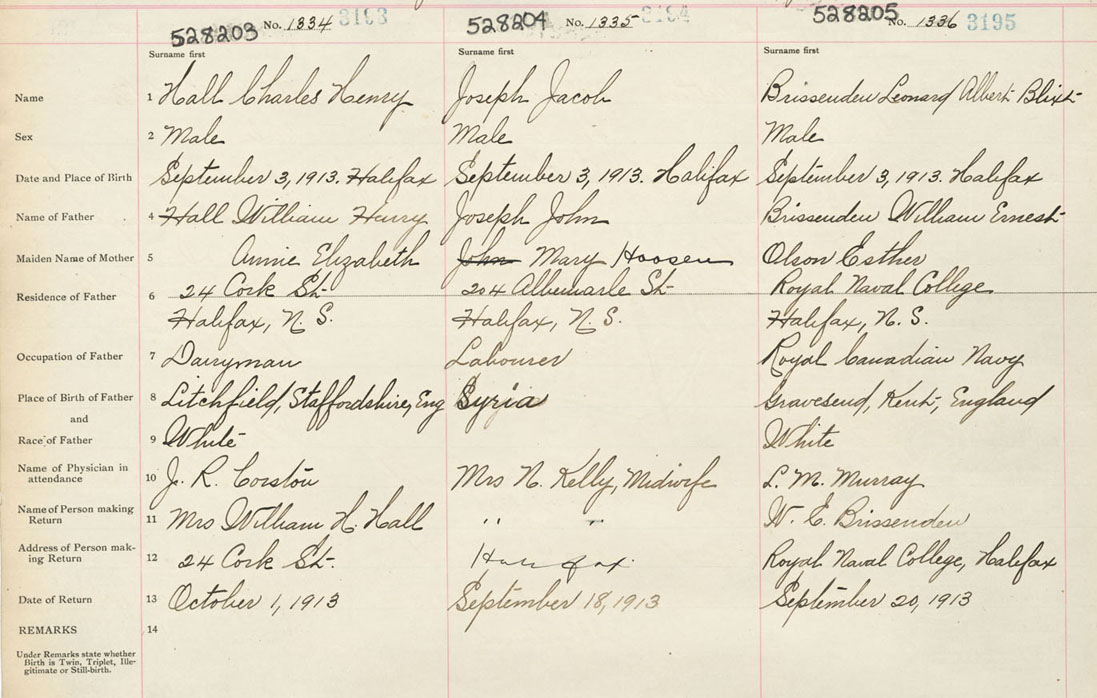 528203 No. 1334 3193
528204 No. 1335 3194
528205 No. 1336 3195
Surname first Surname first Surname first
Name 1 Hall Charles Henry Joseph Jacob Brissenden Leonard Albert Blixt
Sex 2 Male Male Male
Date and Place of Birth September 3, 1913. Halifax September 3, 1913. Halifax September 3, 1913. Halifax
Name of Father 4 Hall William Henry Joseph John Brissenden William Ernest
Maiden Name of Mother 5 Annie Elizabeth John Mary Hoosen Olson Esther
Residence of Father 6 24 Cork St. 204 Albemarle St. Royal Naval College
Halifax, N. S. Halifax, N. S. Halifax, N. S.
Occupation of Father 7 Dairyman Labourer Royal Canadian Navy
Place of Birth of Father 8 Litchfield, Staffordshire, Eng Syria Gravesend, Kent, England
and
Race of Father 9 White White
Name of Physician in
attendance 10 J. R. Corston Mrs N. Kelly, Midwife L. M. Murray
Name of Person making
Return 11 Mrs William H. Hall " " W. E. Brissenden
Address of Person mak-
ing Return 12 24 Cork St. Halifax. Royal Naval College, Halifax
Date of Return 13 October 1, 1913 September 18, 1913 September 20, 1913
REMARKS 14
Under Remarks state whether
Birth is Twin, Triplet, Ille-
gitimate or Still-birth.